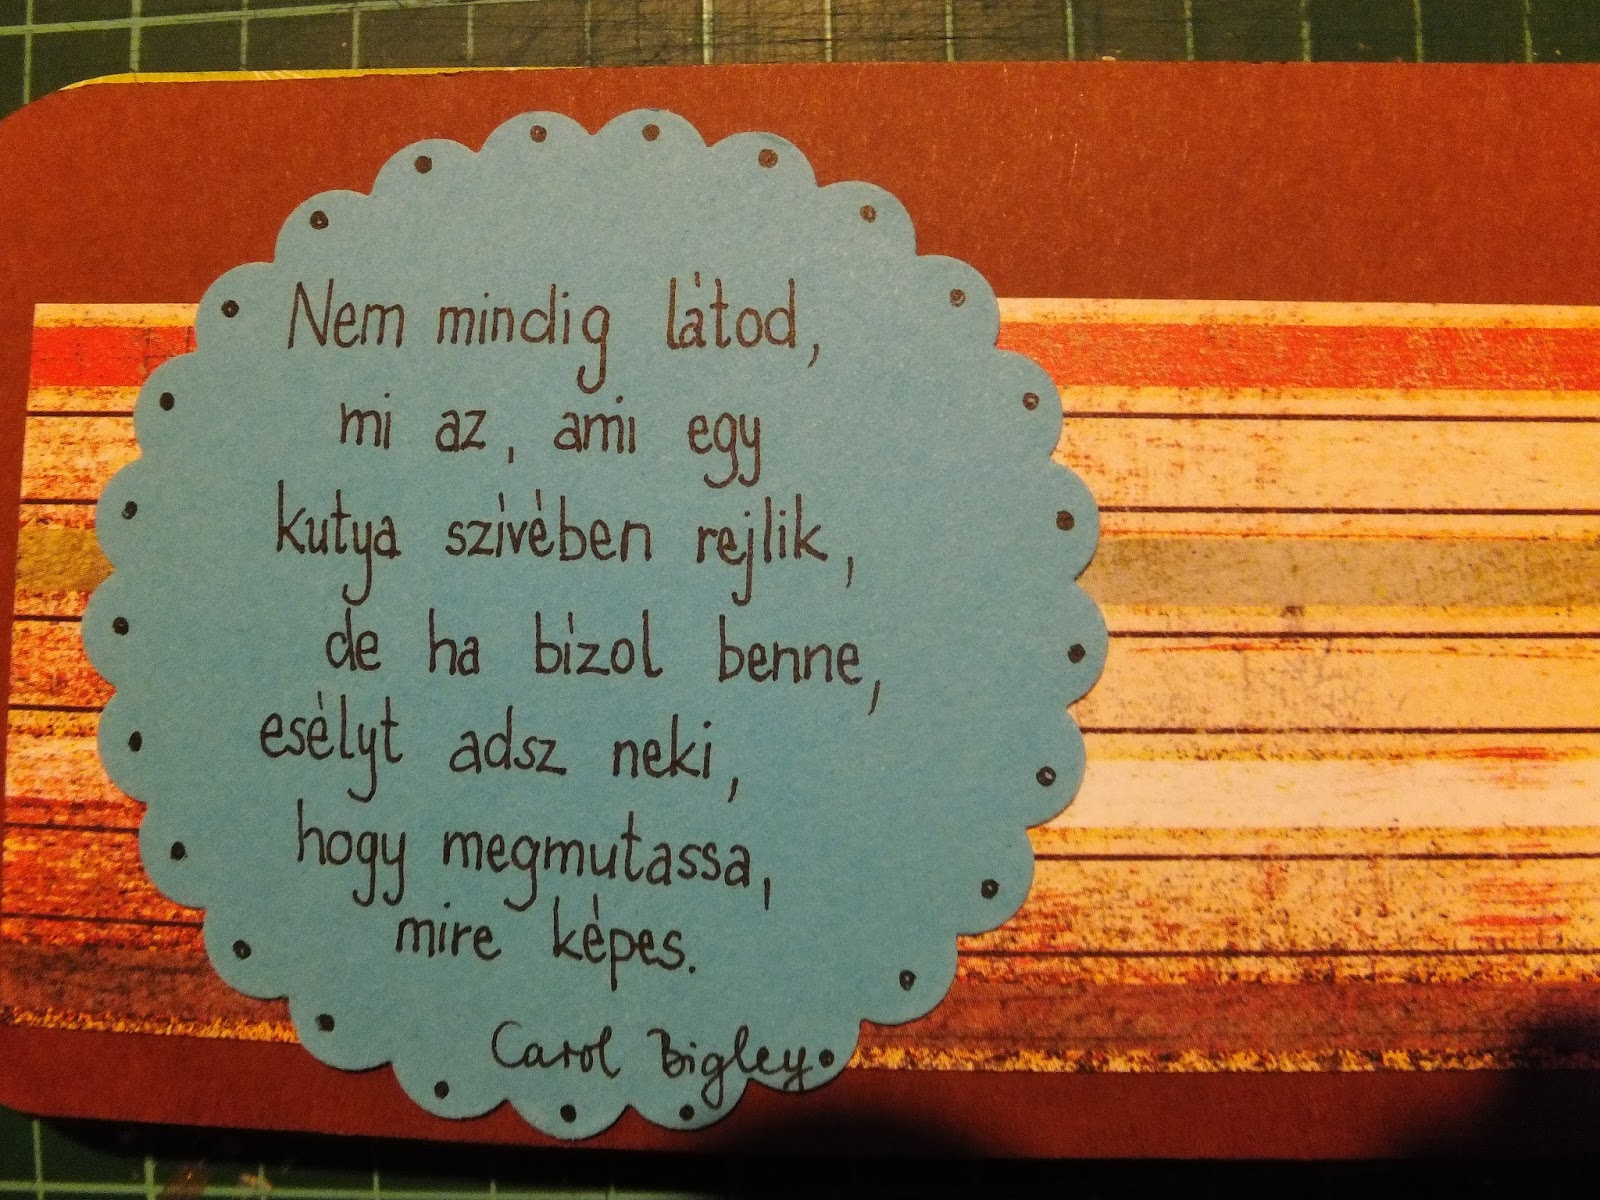 Nem mindig látod,
mi az, ami egy
kutya szívében rejlik,
de ha bízol benne,
esélyt adsz neki,
hogy megmutassa,
mire képes.
Carol Bigley